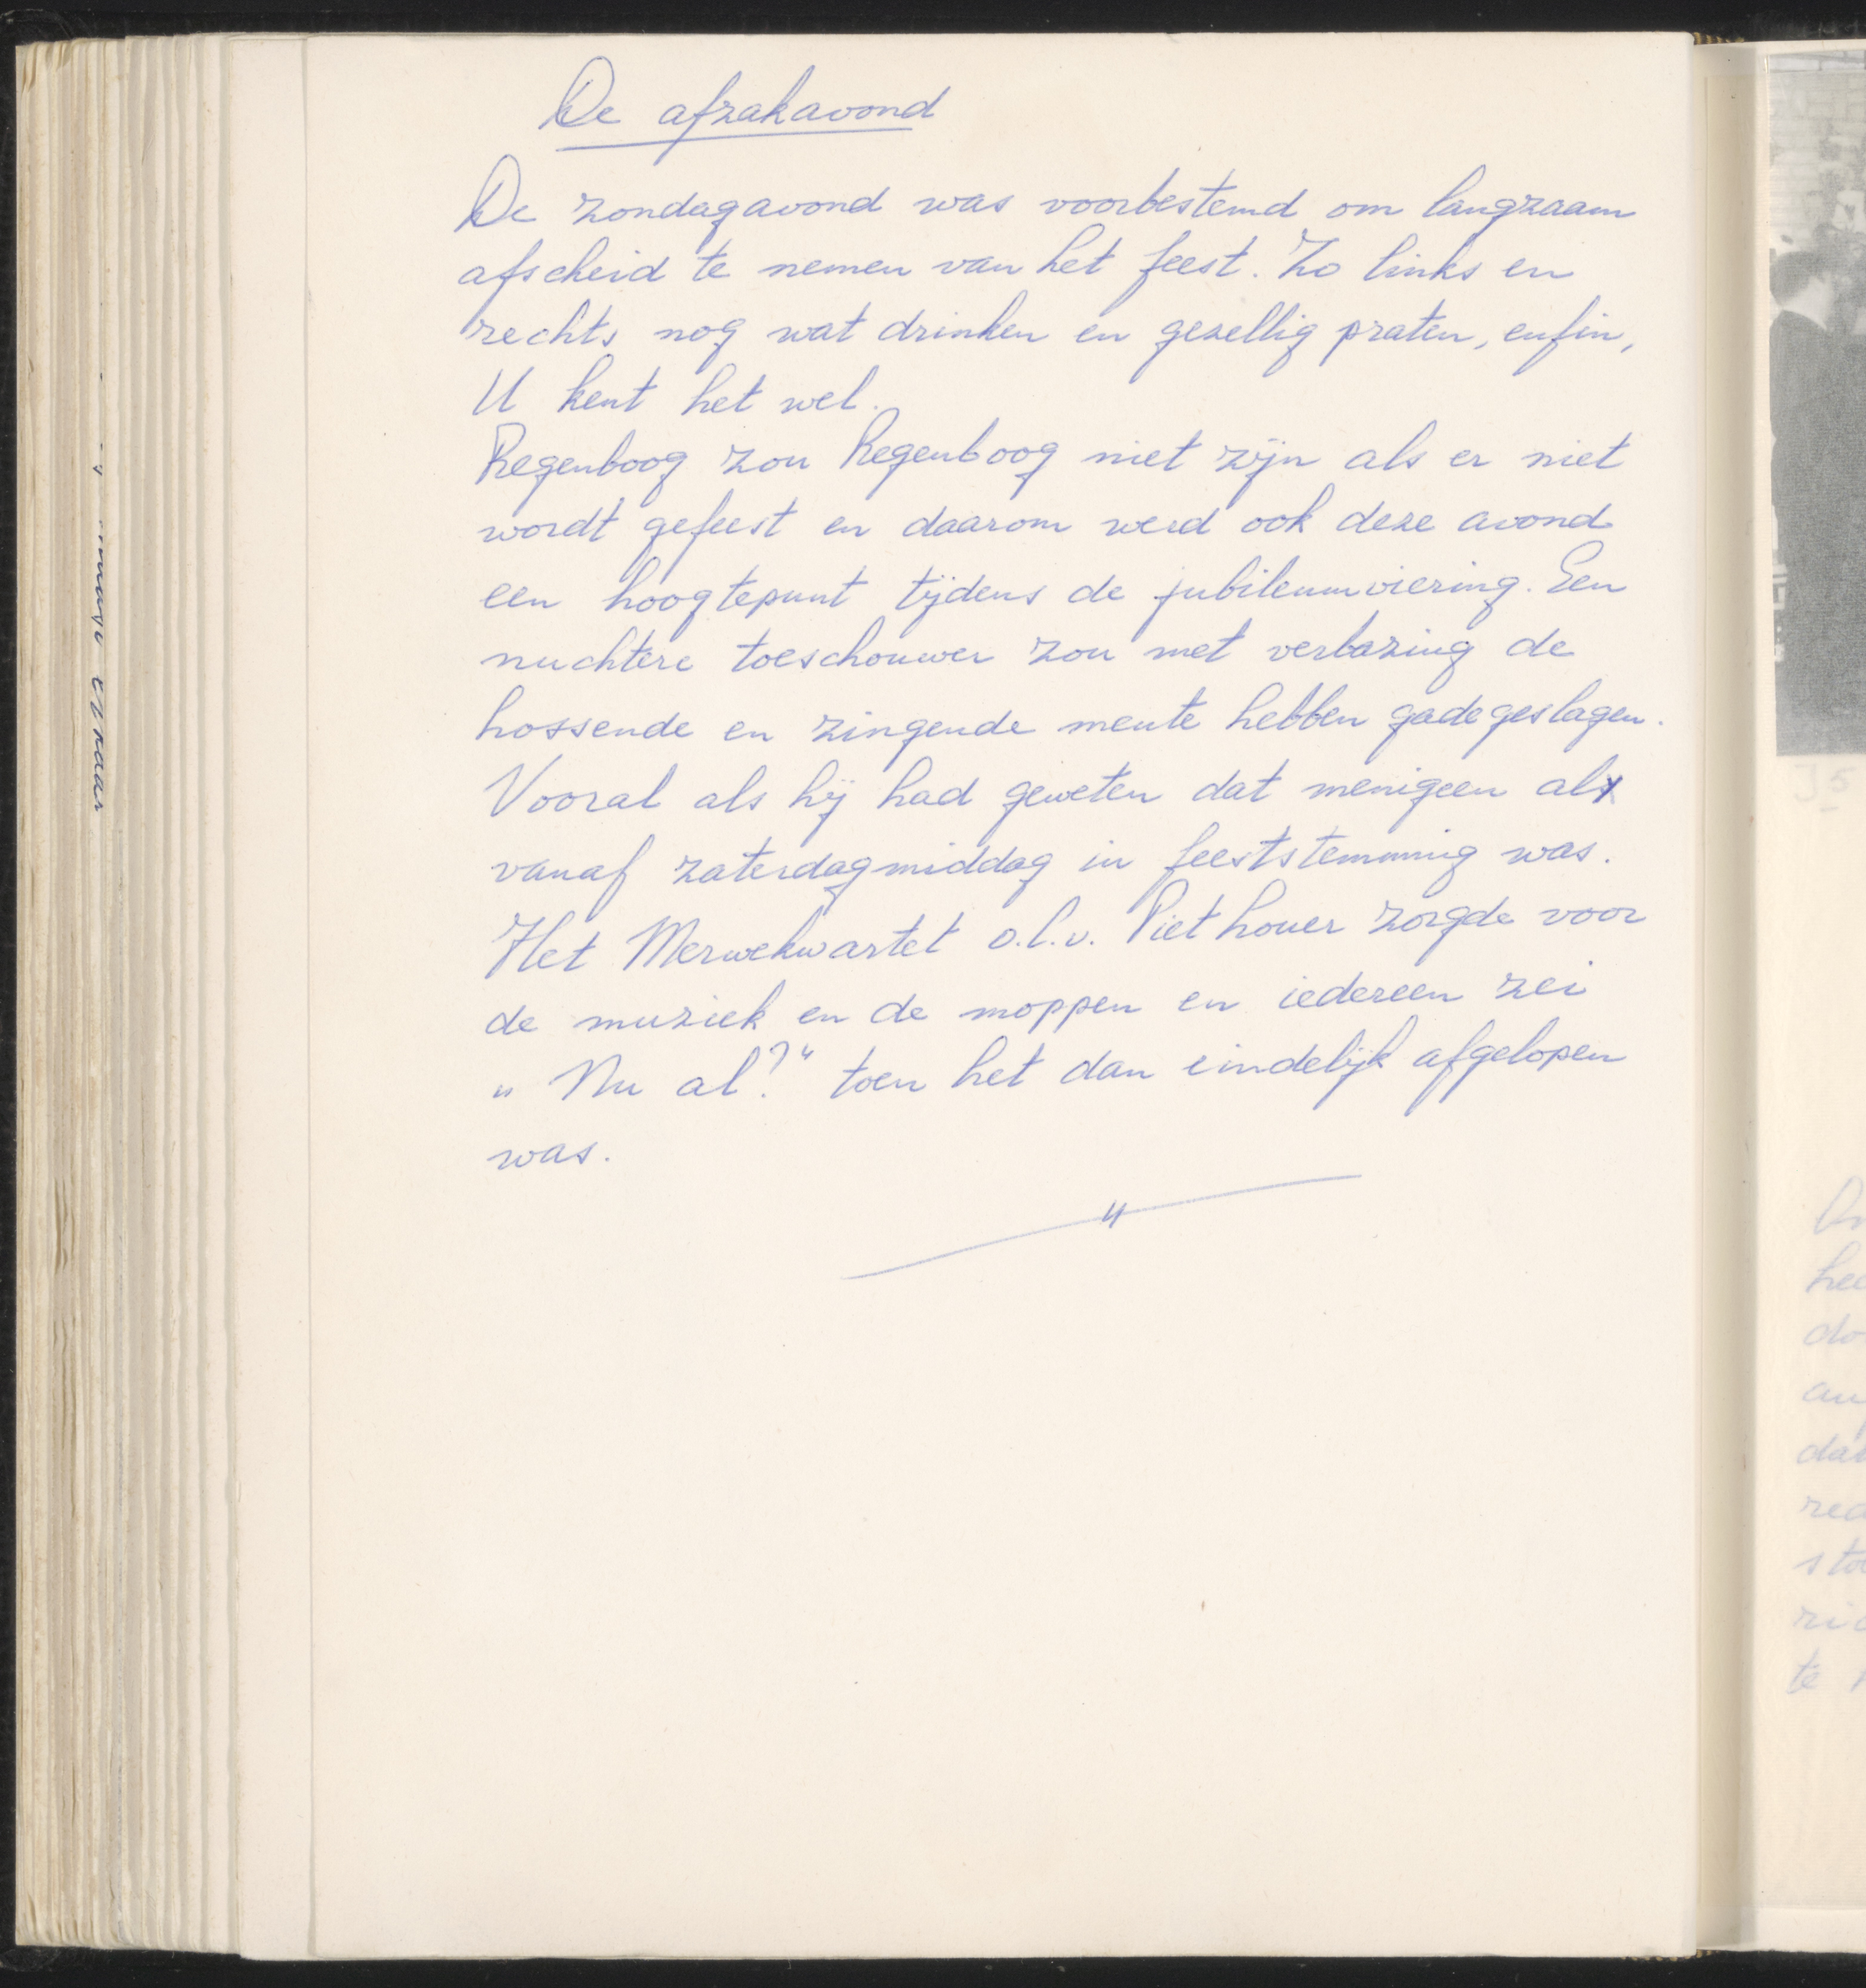 De afzakavond
De zondagavond was voorbestemd om langzaam
afscheid te nemen van het feest. Zo links en
rechts nog wat drinken en gezellig praten, enfin,
U kent het wel.
Regenboog zou Regenboog niet zijn als er niet
wordt gefeest en daarom werd ook deze avond
een hoogtepunt tijdens de jubileumviering. Een
nuchtere toeschouwer zou met verbazing de
hossende en zingende meute hebben gadegeslagen.
Vooral als hij had geweten dat menigeen al
vanaf zaterdagmiddag in feeststemming was.
Het Merwekwartet o.l.v. Piet houer zorgde voor
de muziek en de moppen en iedereen zei
„ Nu al?“ toen het dan eindelijk afgelopen
was.